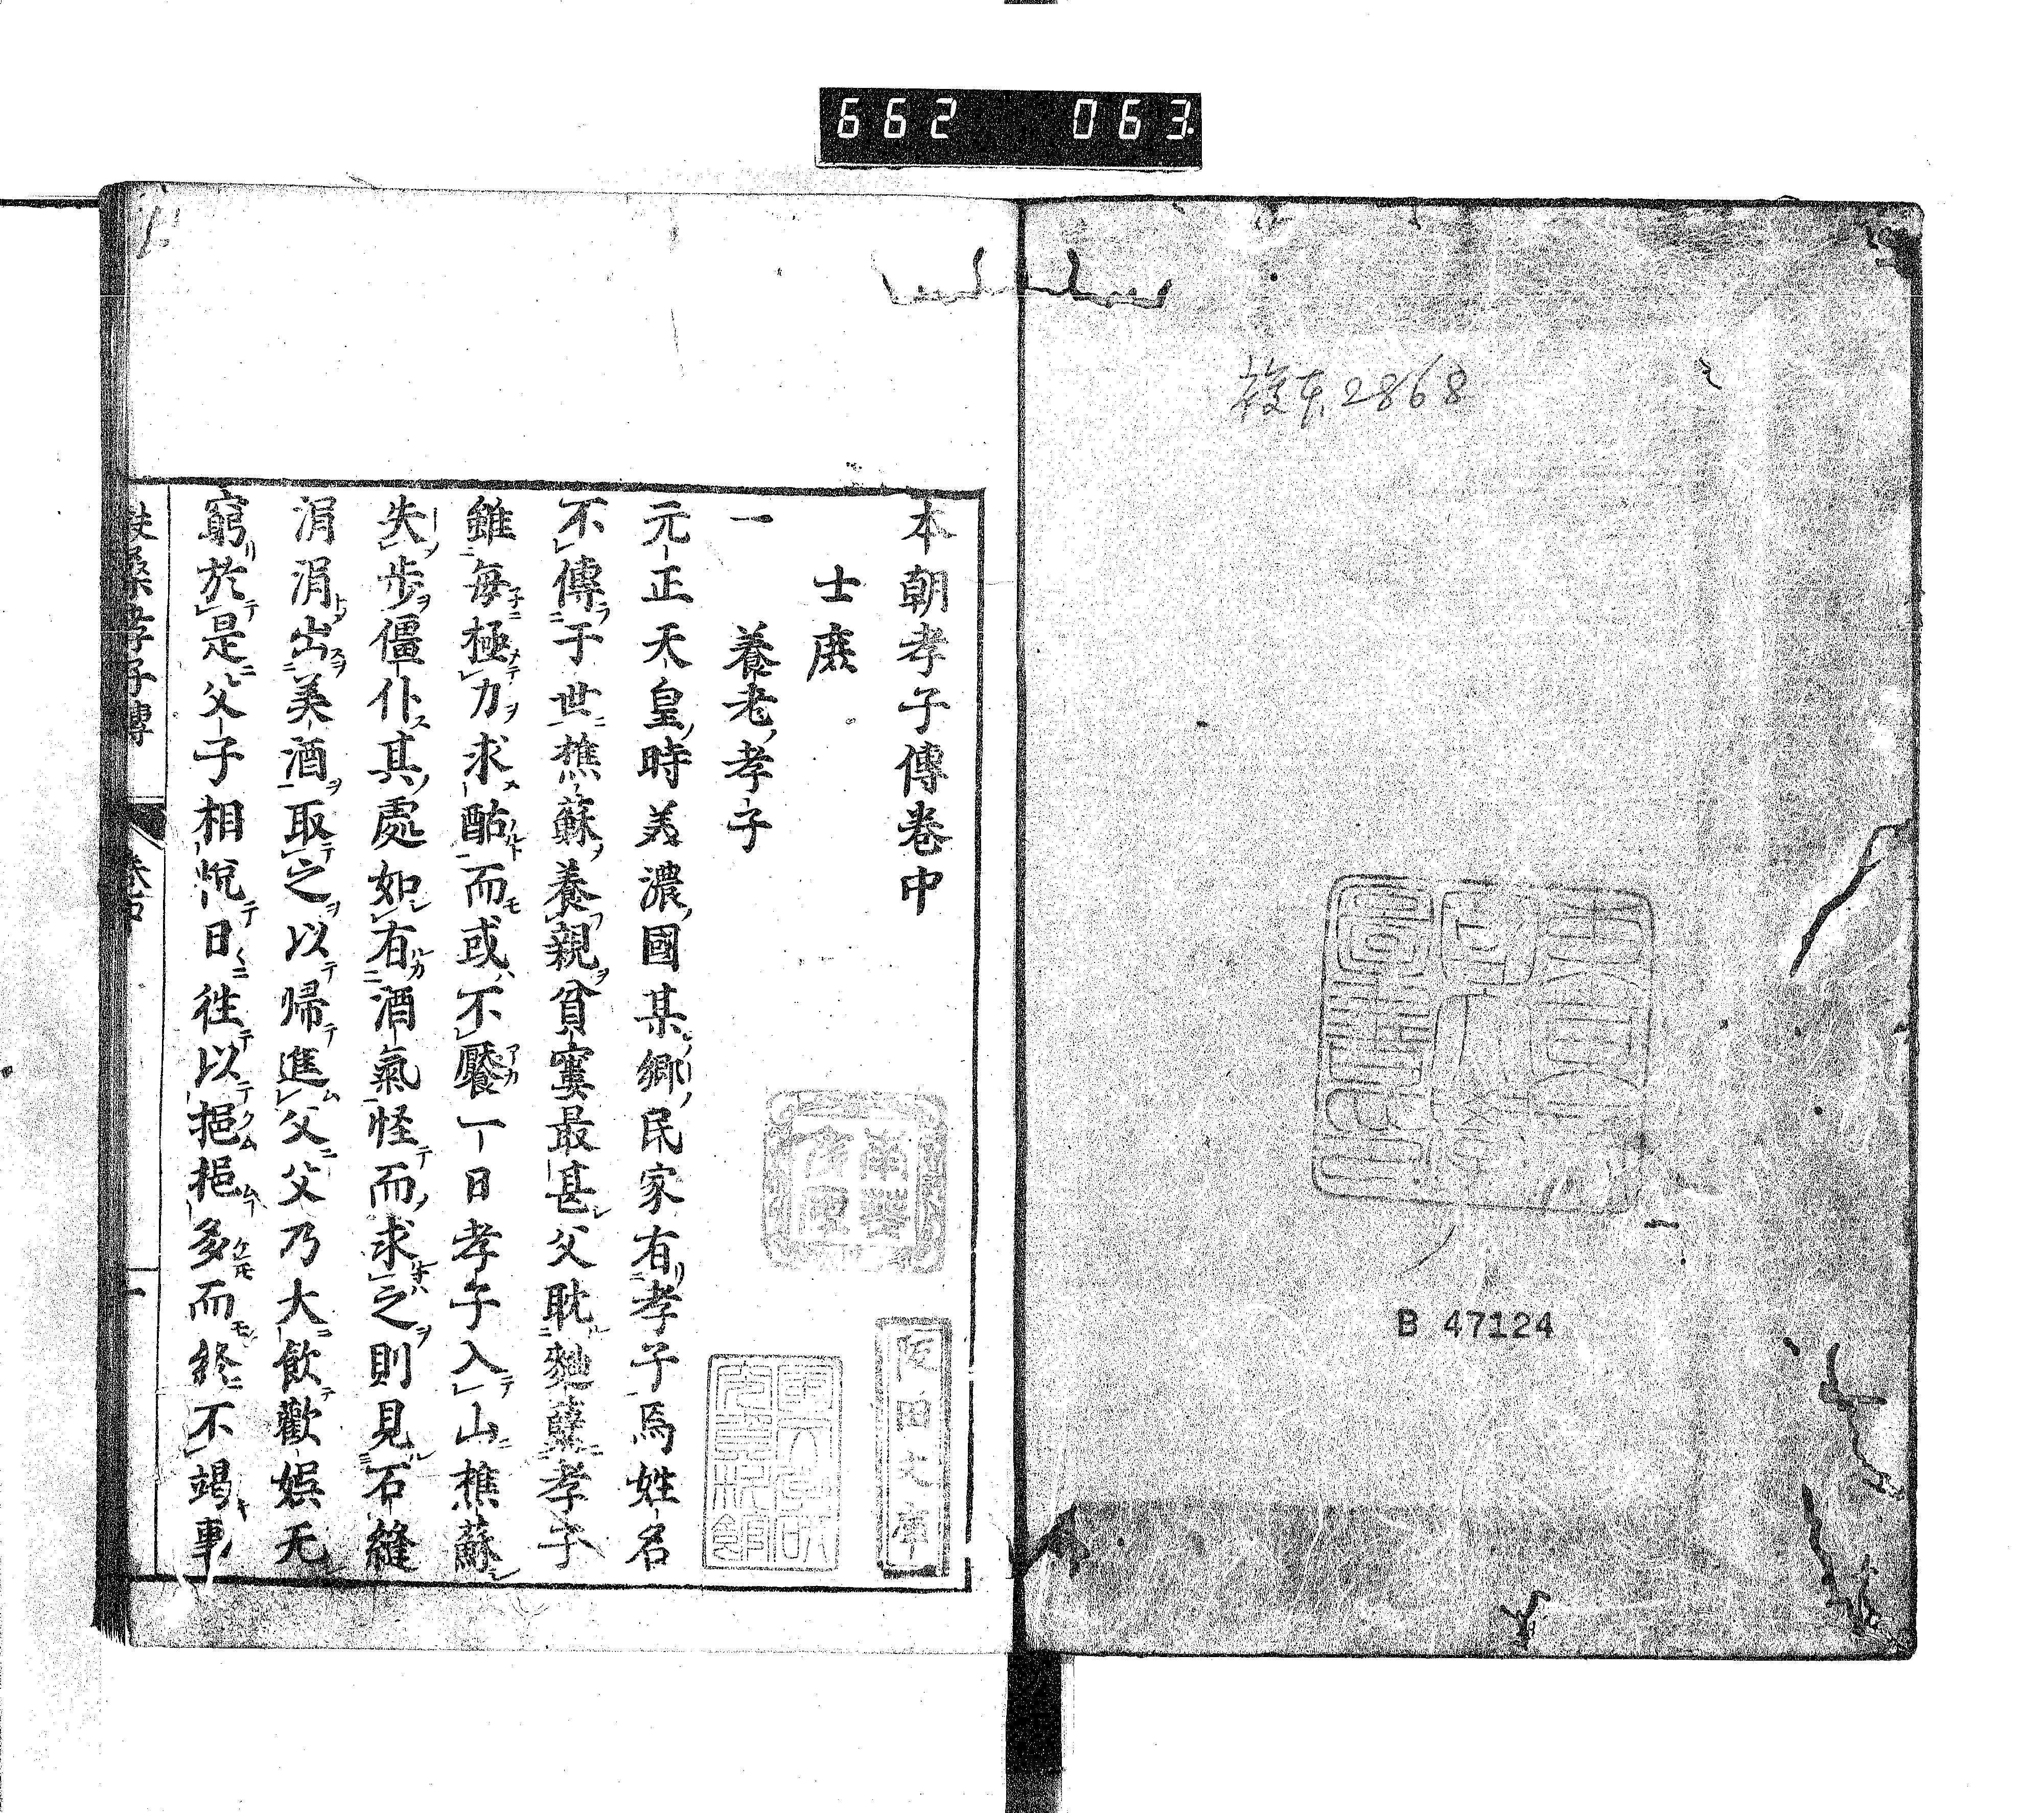 662 063.
複東2868
B 47124
本朝孝子傳巻中
士庶
一 養老孝子
元正天皇時美濃國某郷民家有孝子焉姓名
不傳于世樵蘇養親貧窶最甚父耽麹糵孝子
雖毎極力求酤而或不饜一日孝子入山樵蘇
失歩僵仆其處如有酒氣怪而求之則見石縫
涓涓出美酒取之以帰進父父乃大飲歡娯无
窮於是父子相悦日往以挹挹多而終不竭事
扶桑孝子傳
一